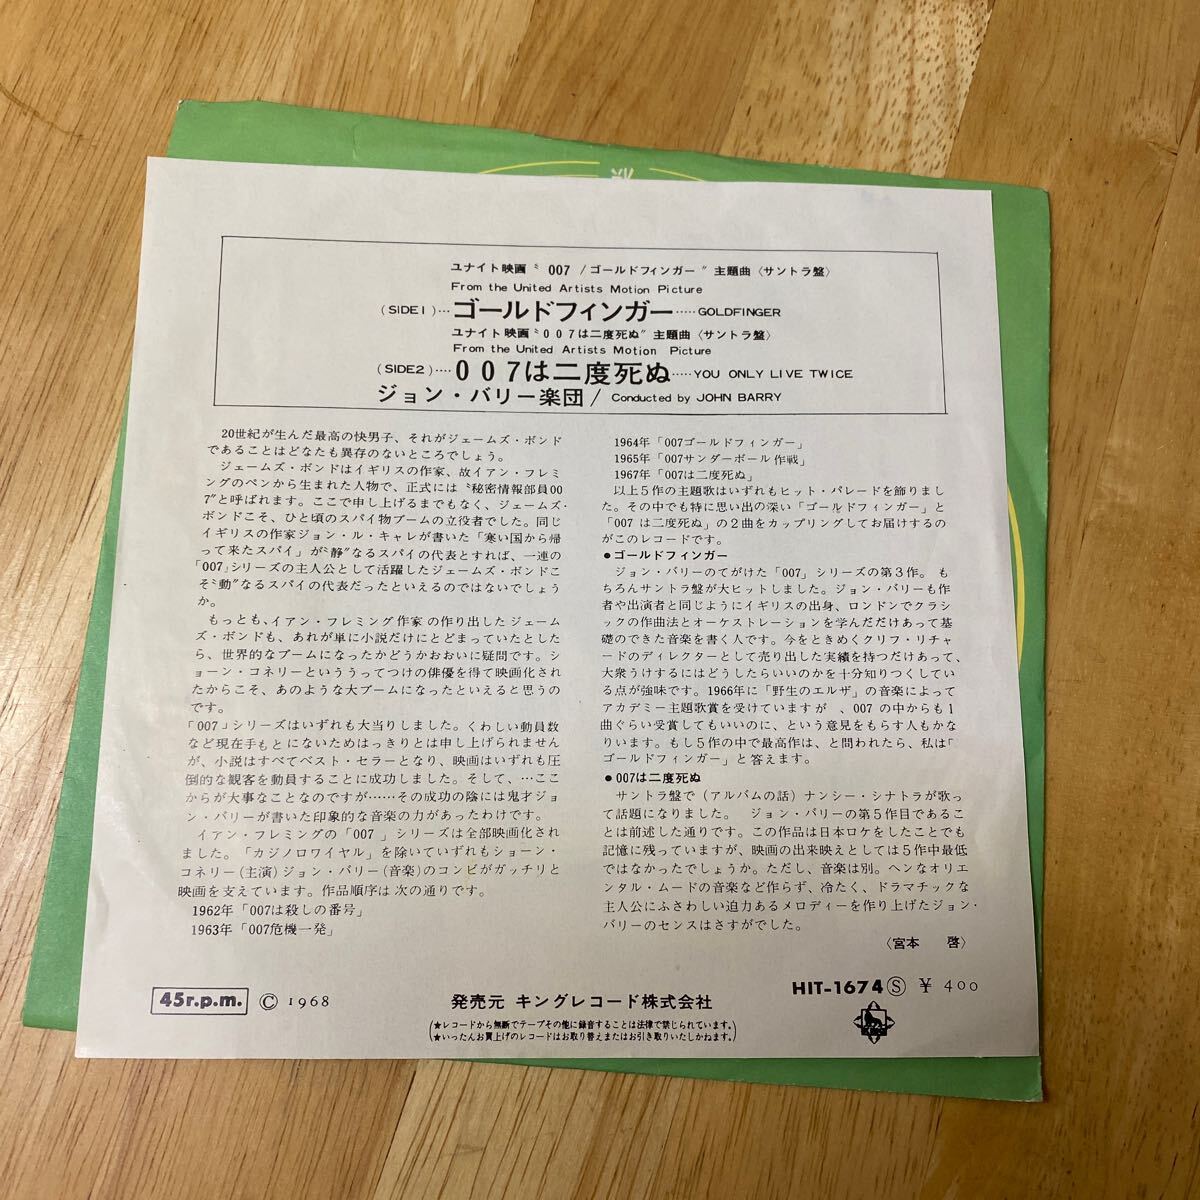 ユナイト映画〝007/ゴールドフィンガー〟主題曲〈サントラ盤〉
From the United Artists Motion Picture
(SIDE1)…ゴールドフィンガー……GOLDFINGER
ユナイト映画〝007は二度死ぬ〟主題曲〈サントラ盤〉
From the United Artists Motion Picture
(SIDE2)…007は二度死ぬ……YOU ONLY LIVE TWICE
ジョン・バリー楽団/Conducted by JOHN BARRY
20世紀が生んだ最高の快男子、それがジェームズ・ボンド
であることはどなたも異存のないところでしょう。
ジェームズ・ボンドはイギリスの作家、故イアン・フレミ
ングのペンから生まれた人物で、正式には〝秘密情報部員00
7〟と呼ばれます。ここで申し上げるまでもなく、ジェームズ・
ボンドこそ、ひと頃のスパイ物ブームの立役者でした。同じ
イギリスの作家ジョン・ル・キャレが書いた「寒い国から帰
って来たスパイ」が〝静〟なるスパイの代表とすれば、一連の
「007」シリーズの主人公として活躍したジェームズ・ボンドこ
そ〝動〟なるスパイの代表だったといえるのではないでしょう
か。
もっとも、イアン・フレミング作家の作り出したジェーム
ズ・ボンドも、あれが単に小説だけにとどまっていたとした
ら、世界的なブームになったかどうかおおいに疑問です。シ
ョーン・コネリーといううってつけの俳優を得て映画化され
たからこそ、あのような大ブームになったといえると思うの
です。
「007」シリーズはいずれも大当りしました。くわしい動員数
など現在手もとにないためはっきりとは申し上げられません
が、小説はすべてベスト・セラーとなり、映画はいずれも圧
倒的な観客を動員することに成功しました。そして、…ここ
からが大事なことなのですが……その成功の陰には鬼才ジョ
ン・バリーが書いた印象的な音楽の力があったわけです。
イアン・フレミングの「007」シリーズは全部映画化され
ました。「カジノロワイヤル」を除いていずれもショーン・
コネリー(主演)ジョン・バリー(音楽)のコンビがガッチリと
映画を支えています。作品順序は次の通りです。
1962年「007は殺しの番号」
1963年「007危機一発」
1964年「007ゴールドフィンガー」
1965年「007サンダーボール作戦」
1967年「007は二度死ぬ」
以上5作の主題歌はいずれもヒット・パレードを飾りまし
た。その中でも特に思い出の深い「ゴールドフィンガー」と
「007は二度死ぬ」の2曲をカップリングしてお届けするの
がこのレコードです。
●ゴールドフィンガー
ジョン・バリーのてがけた「007」シリーズの第3作。も
ちろんサントラ盤が大ヒットしました。ジョン・バリーも作
者や出演者と同じようにイギリスの出身、ロンドンでクラシ
ックの作曲法とオーケストレーションを学んだだけあって基
礎のできた音楽を書く人です。今をときめくクリフ・リチャ
ードのディレクターとして売り出した実績を持つだけあって、
大衆うけするにはどうしたらいいのかを十分知りつくしてい
る点が強味です。1966年に「野生のエルザ」の音楽によって
アカデミー主題歌賞を受けていますが、007の中からも1
曲ぐらい受賞してもいいのに、という意見をもらす人もかな
りいます。もし5作の中で最高作は、と問われたら、私は「
ゴールドフィンガー」と答えます。
●007は二度死ぬ
サントラ盤で(アルバムの話)ナンシー・シナトラが歌っ
て話題になりました。ジョン・バリーの第5作目であるこ
とは前述した通りです。この作品は日本ロケをしたことでも
記憶に残っていますが、映画の出来映えとしては5作中最低
ではなかったでしょうか。ただし、音楽は別。ヘンなオリエ
ンタル・ムードの音楽など作らず、冷たく、ドラマチックな
主人公にふさわしい迫力あるメロディーを作り上げたジョン・
バリーのセンスはさすがでした。
〈宮本 啓〉
45r.p.m. © 1968 発売元 キングレコード株式会社 HIT-1674 Ⓢ ¥400
(★レコードから無断でテープその他に録音することは法律で禁じられています。)
(★いったんお買上げのレコードはお取り替えまたはお引き取りいたしかねます。)